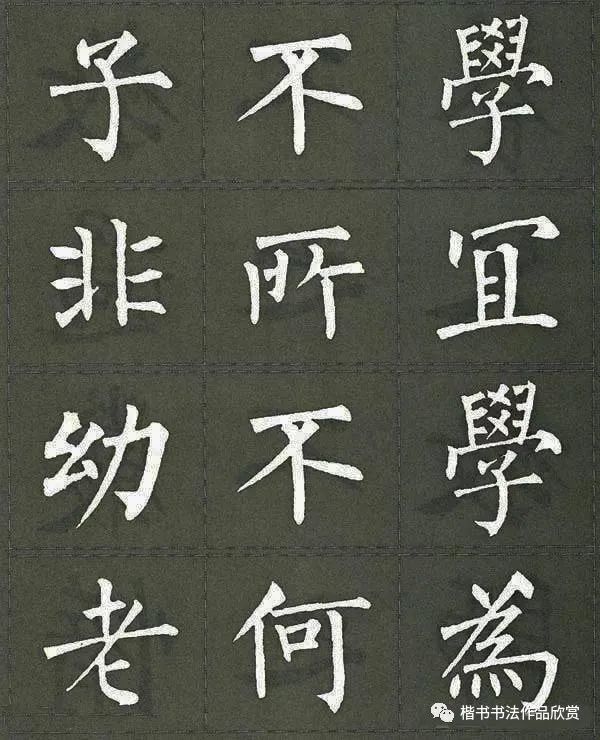 子不學
非所冝
幼不學
老何為
楷书书法作品欣赏